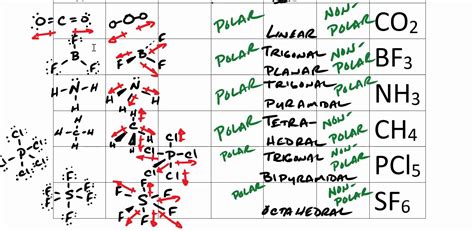 O=C=O O-O-O POLAR LINEAR NON-POLAR CO2
F
B B
F F F F
POLAR TRIGONAL PLANAR NON-POLAR BF3
H-N-H N
H H H H
POLAR TRIGONAL PYRAMIDAL POLAR NH3
H
H-C-H C
H
POLAR TETRA-HEDRAL NON-POLAR CH4
Cl Cl
P Cl Cl P Cl
Cl Cl Cl Cl
POLAR TRIGONAL BIPYRAMIDAL NON-POLAR PCl5
F F F F
F-S-F S
F F F F
POLAR OCTAHEDRAL NON-POLAR SF6